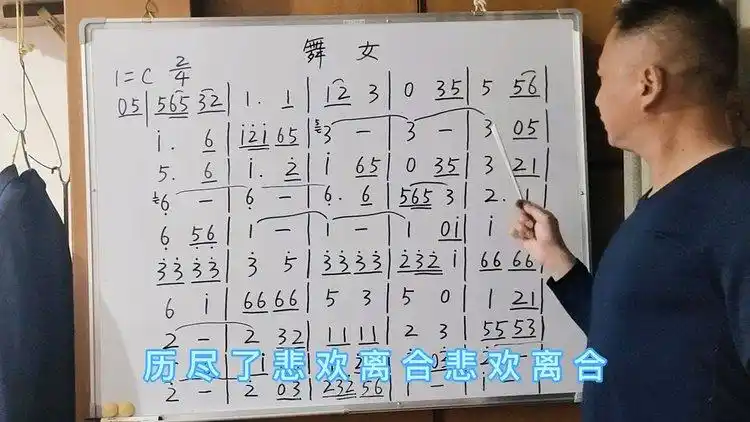 舞女
1=C 2/4
05 | 565 32 | 1. 1 | 12 3 | 0 35 | 5 56 |
i. 6 | i2i 65 | 3 – | 3 – | 3 05
5. 6 | i. 2 | i 65 | 0 35 | 3 21
6 – | 6 – | 6. 6 | 565 3 | 2. 1
6 56 | 1 – | 1 – | 1 0i | i
33 33 | 3 5 | 33 33 | 232 i | 66 66 |
6 i | 66 66 | 5 3 | 5 0 | 1 21
2 – | 2 32 | 11 11 | 2 3 | 55 53
历尽了悲欢离合悲欢离合
2 – | 2 03 | 232 56 | 1 – | i